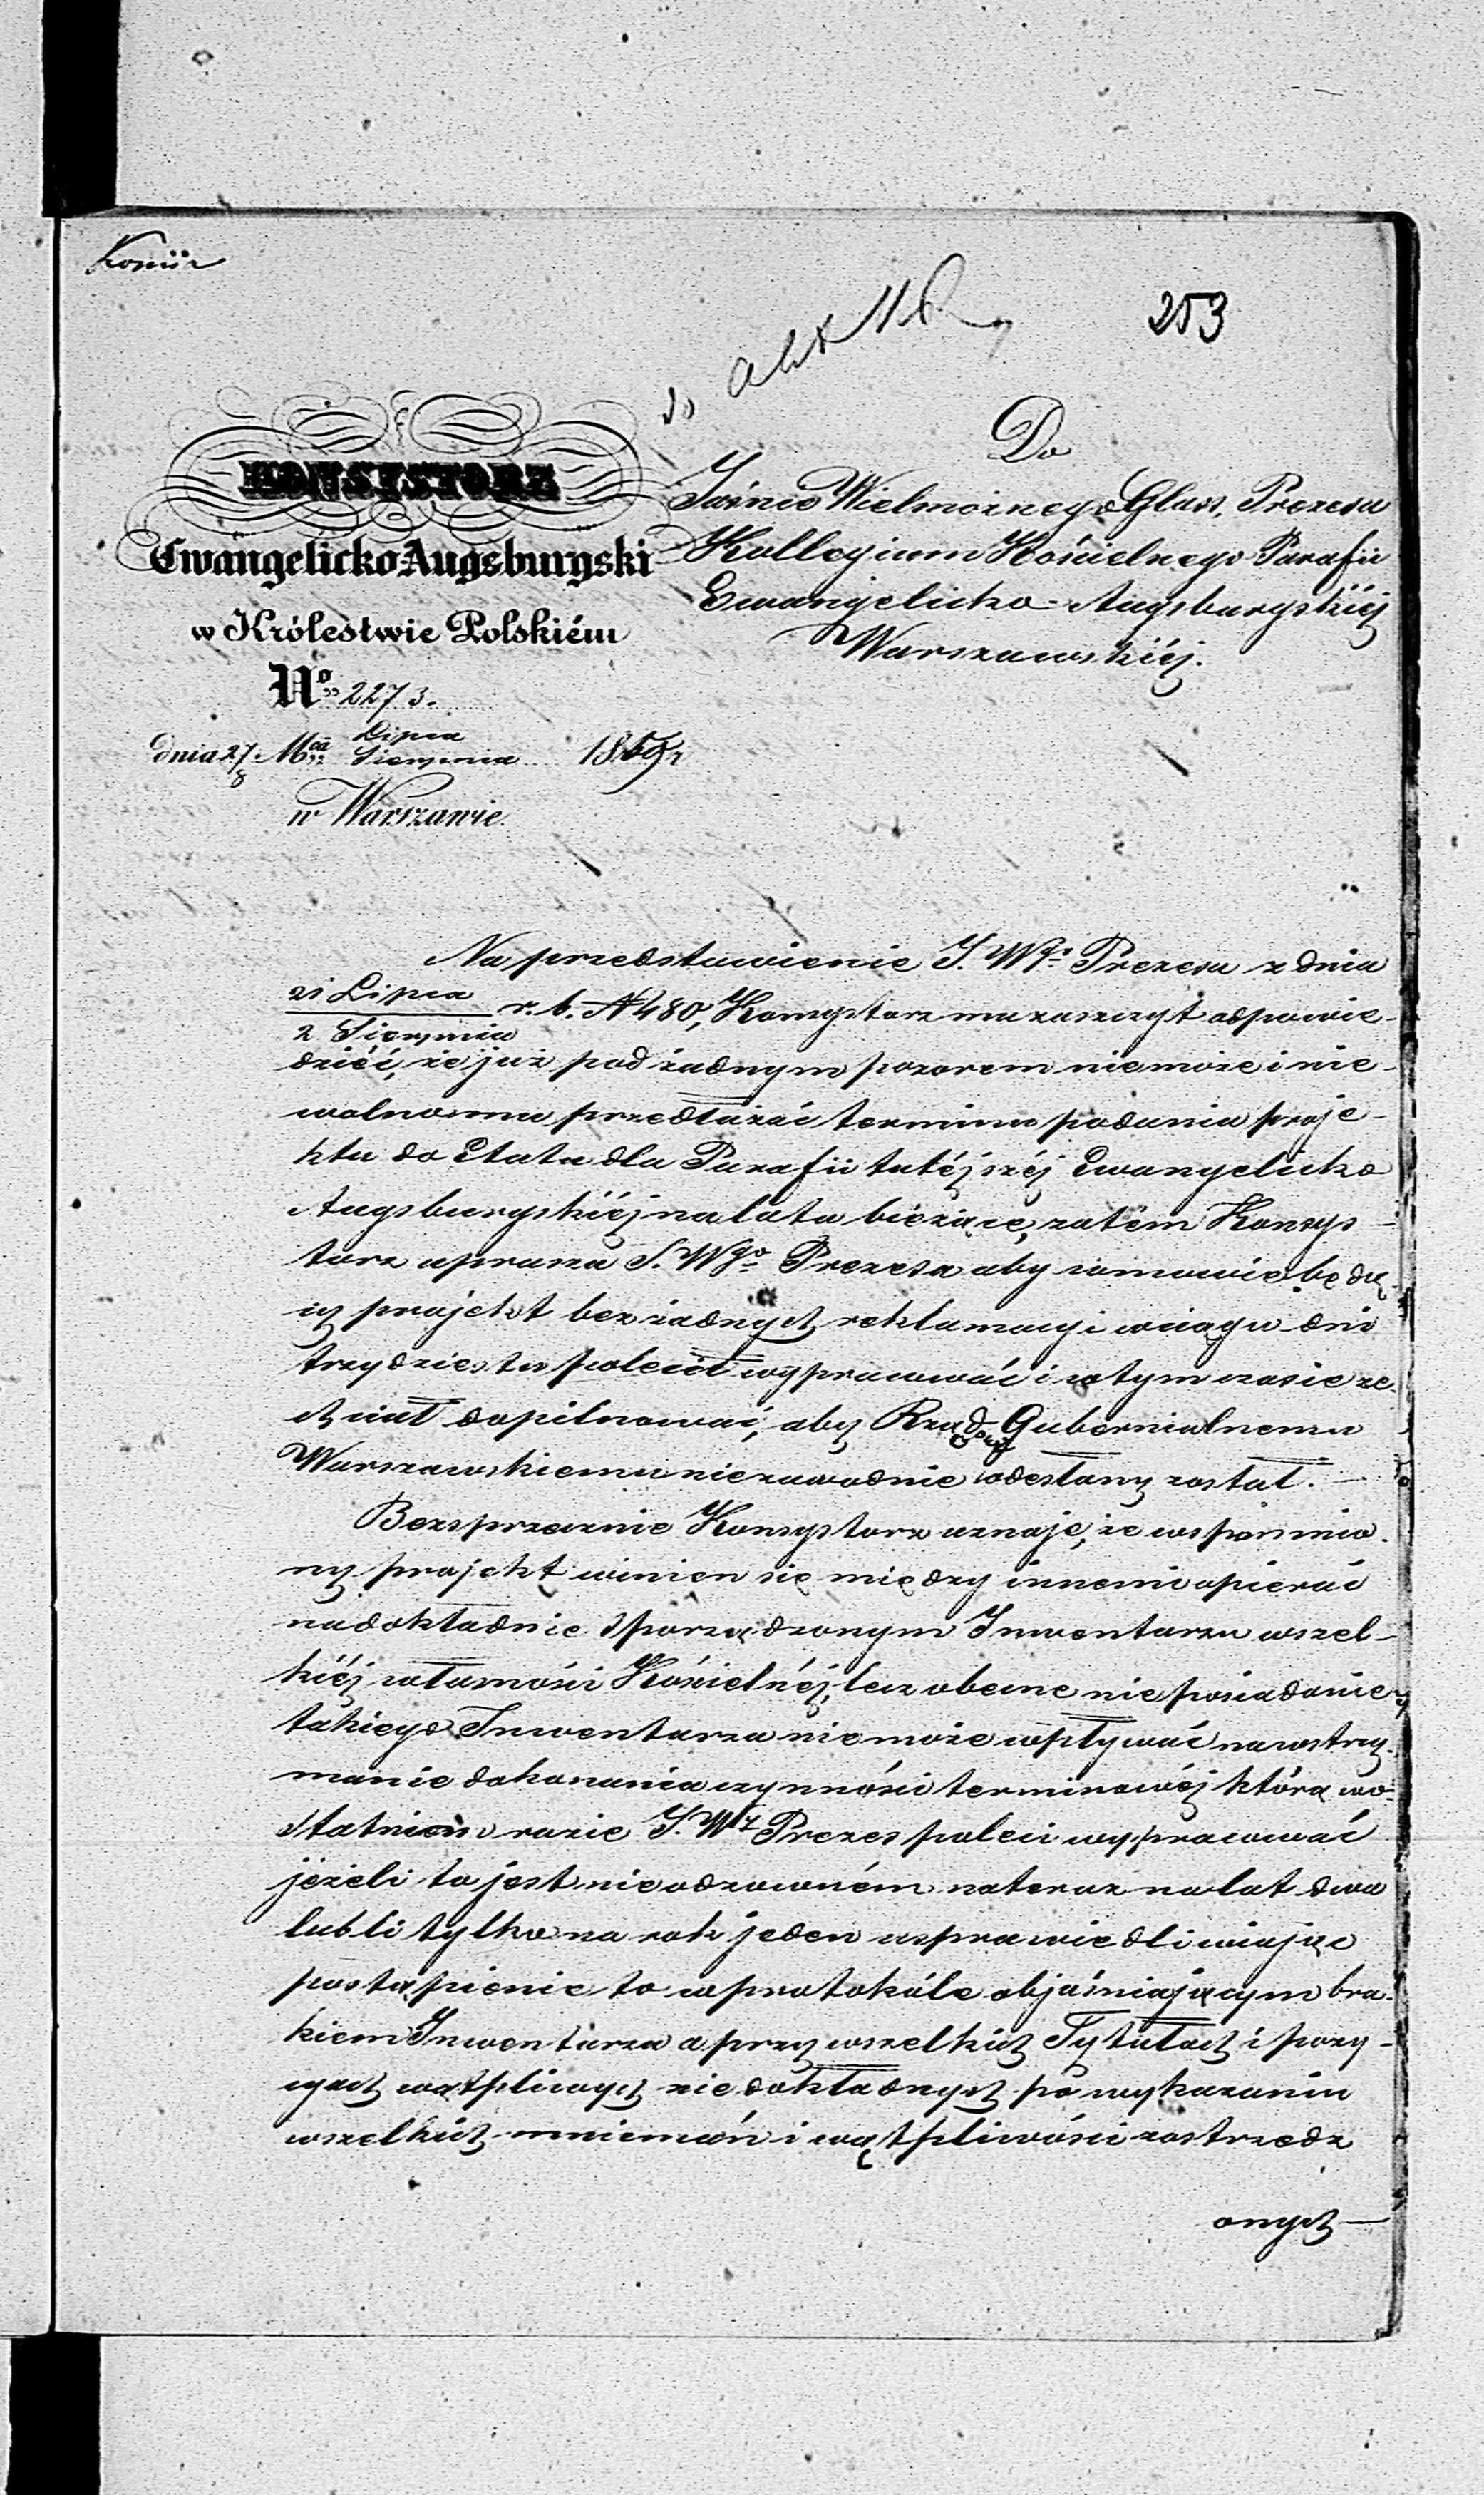 253
do akt
KONSYSTORZ
Ewangelicko-Augsburgski
w Królestwie Polskiém
No 2273.
dnia 27/8 Mca Lipca Sierpnia 1859 r
w Warszawie.
Do
Jaśnie Wielmożnego Glass, Prezesa
Kollegium Kościelnego Parafii
Ewangelicko-Augsburgskiéj
Warszawskiéj.
Na przedstawienie J. Wgo Prezesa z dnia
21 Lipca / 2 Sierpnia r. b. N 480, Konsystorz ma zaszczyt odpowie-
dzieć, że już pod żadnym pozorem niemoże i nie-
wolno mu przedłużać terminu podania proje-
ktu do Etatu dla Parafii tutéjszéj Ewangelicko
Augsburgskiéj na lata bieżące, zatém Konsys-
torz uprasza J. Wgo Prezesa aby w mowie będą-
cy projekt bez żadnych reklamacyi w ciągu dni
trzydziestu polecił wypracować i w tym czasie ze-
chciał dopilnować, aby Rządowi Gubernialnemu
Warszawskiemu niezawodnie odesłany został.
Bezsprzecznie Konsystorz uznaje, że wspomnio-
ny projekt winien się między innemi opierać
na dokładnie sporządzonym Inwentarzu wszel-
kiéj własności Kościelnéj, lecz obecne nieposiadanie
takiego Inwentarza niemoże wpływać na wstrzy-
manie dokonania czynności terminowéj którą w o-
statnim razie J. Wy Prezes poleci wypracować
jeżeli to jest nieodzowném na teraz na lat dwa
lub li tylko na rok jeden usprawiedliwiając
postąpienie to w protokóle objaśniającym bra-
kiem Inwentarza a przy wszelkich Tytułach i pozy-
cyach wątpliwych niedokładnych po wykazaniu
wszelkich mniemań i wątpliwości zastrzedz
onych